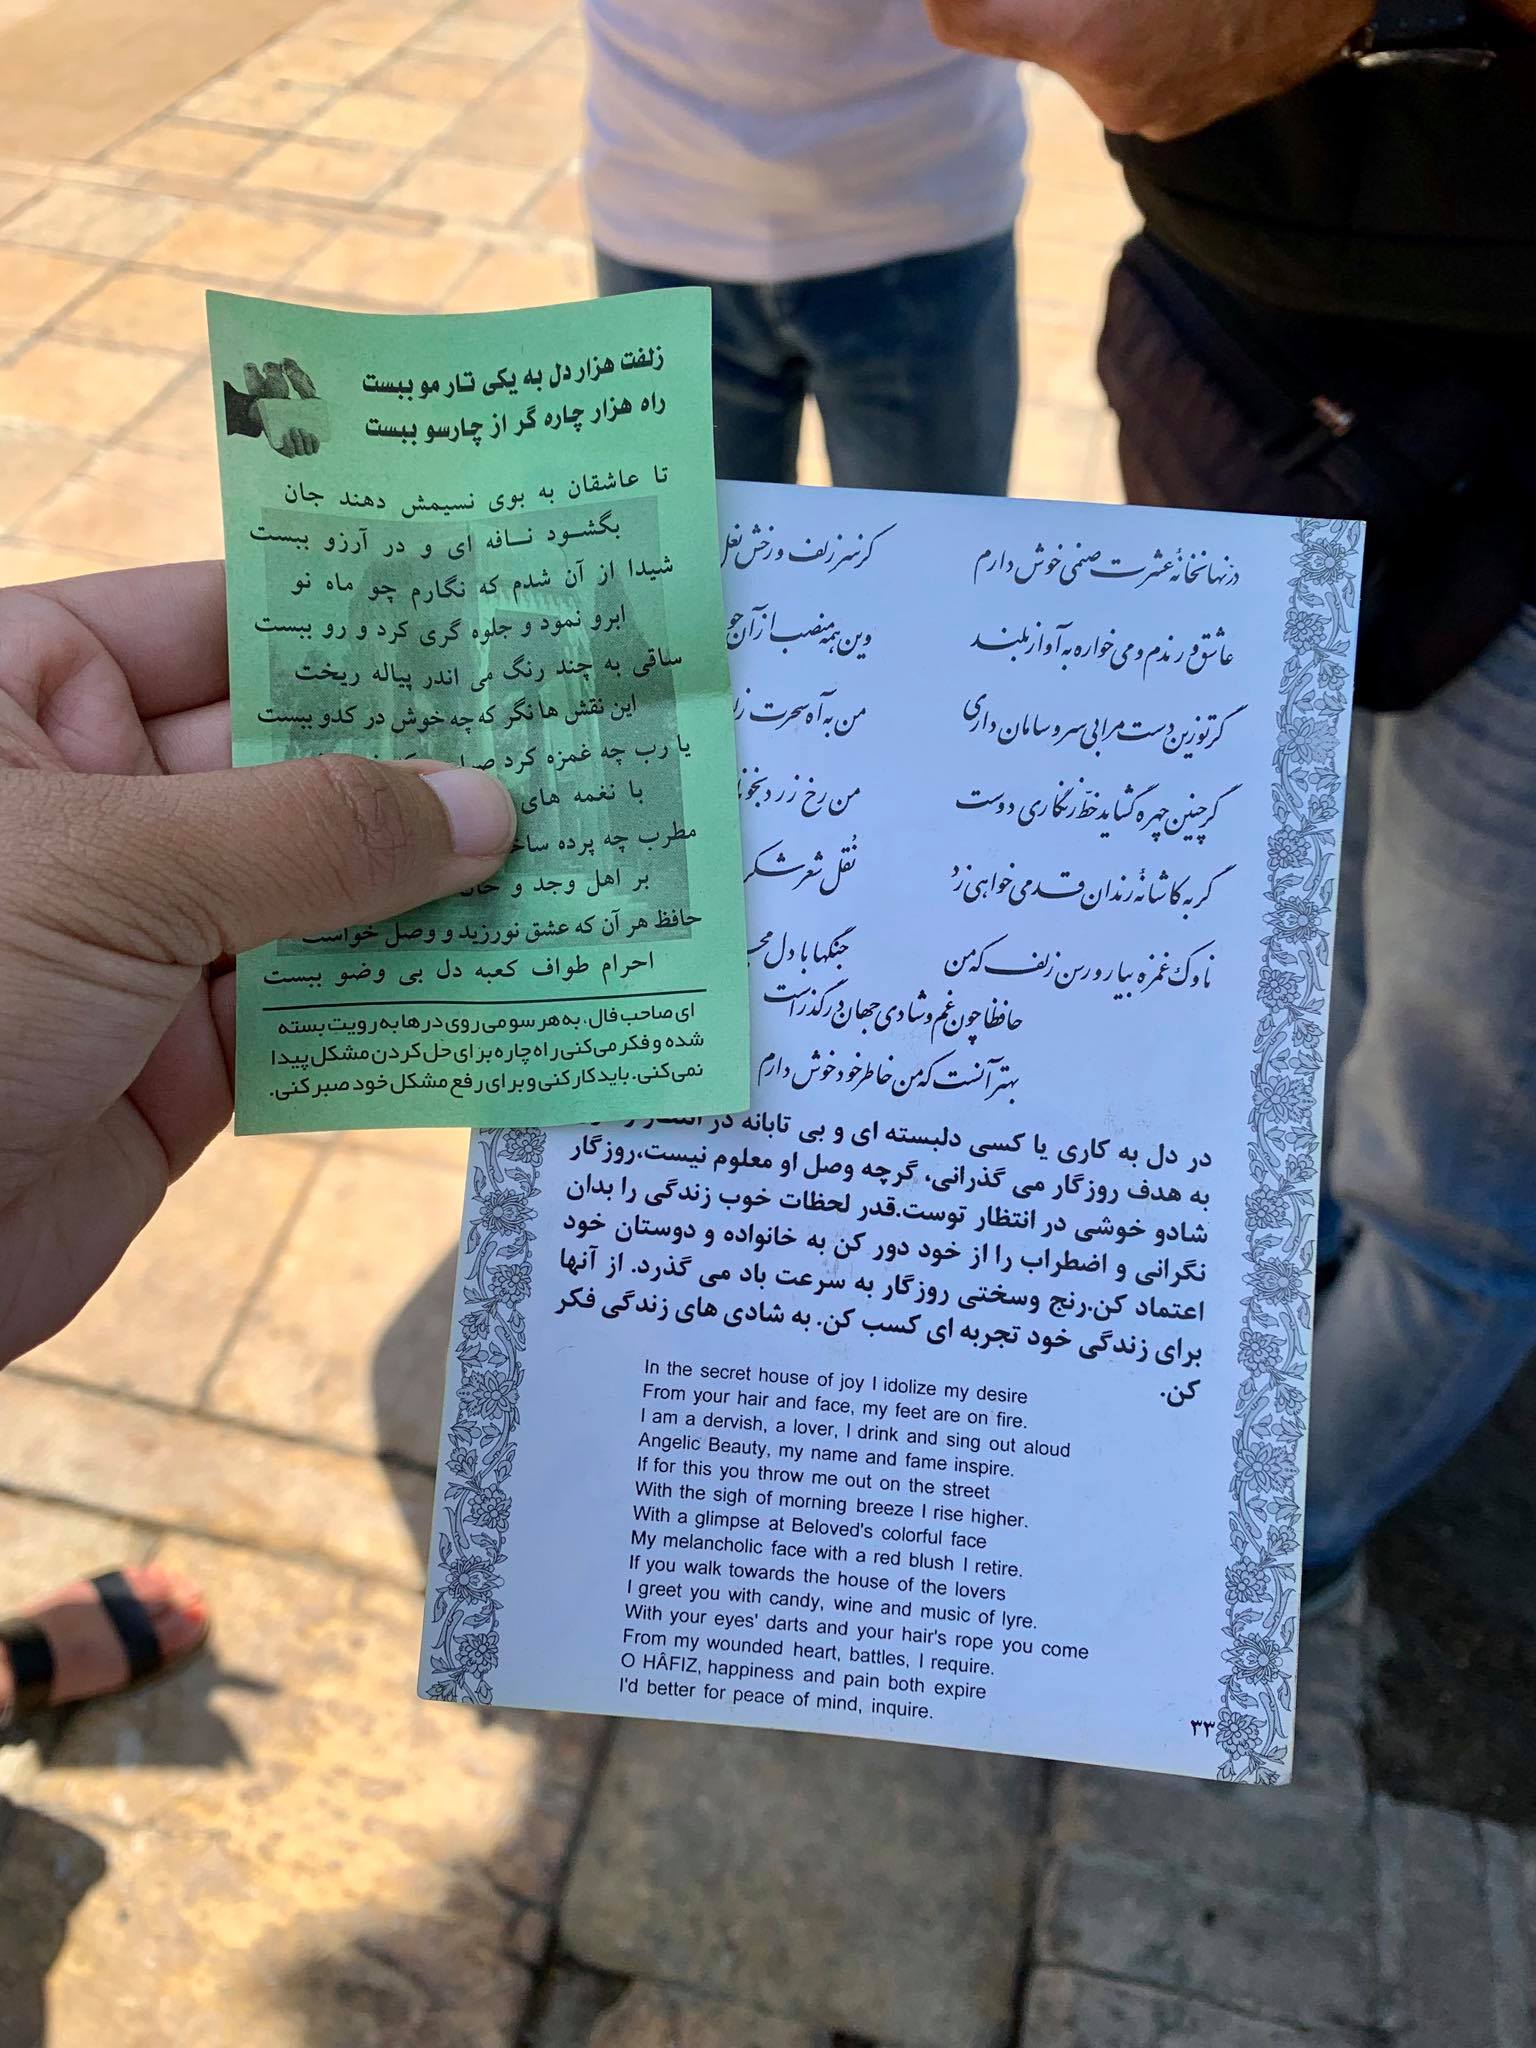 زلفت هزار دل به یکی تار مو ببست
راه هزار چاره گر از چارسو ببست
تا عاشقان به بوی نسیمش دهند جان
بگشود نافه ای و در آرزو ببست
شیدا از آن شدم که نگارم چو ماه نو
ابرو نمود و جلوه گری کرد و رو ببست
ساقی به چند رنگ می اندر پیاله ریخت
این نقش ها نگر که چه خوش در کدو ببست
یا رب چه غمزه کرد
با نغمه های
مطرب چه پرده
بر اهل وجد و
حافظ هر آن که عشق نورزید و وصل خواست
احرام طواف کعبه دل بی وضو ببست
ای صاحب فال، به هر سو می روی درها به رویت بسته
شده و فکر می کنی راه چاره برای حل کردن مشکل پیدا
نمی کنی. باید کار کنی و برای رفع مشکل خود صبر کنی.
در نهانخانهٔ عشرت صنمی خوش دارم
کز سر زلف و رخش نعل
عاشق و رندم و می خواره به آواز بلند
وین همه منصب از آن
گر تو زین دست مرا بی سر و سامان داری
من به آه سحرت
گر چنین چهره گشاید خط زنگاری دوست
من رخ زرد
گر به کاشانهٔ رندان قدمی خواهی زد
نُقل شعر
ناوک غمزه بیار و رسن زلف که من
جنگها با دل
حافظا چون غم و شادی جهان در گذر است
بهتر آنست که من خاطر خود خوش دارم
در دل به کاری یا کسی دلبسته ای و بی تابانه در
به هدف روزگار می گذرانی، گرچه وصل او معلوم نیست،روزگار
شادو خوشی در انتظار توست.قدر لحظات خوب زندگی را بدان
نگرانی و اضطراب را از خود دور کن به خانواده و دوستان خود
اعتماد کن.رنج وسختی روزگار به سرعت باد می گذرد. از آنها
برای زندگی خود تجربه ای کسب کن. به شادی های زندگی فکر
کن.
In the secret house of joy I idolize my desire
From your hair and face, my feet are on fire.
I am a dervish, a lover, I drink and sing out aloud
Angelic Beauty, my name and fame inspire.
If for this you throw me out on the street
With the sigh of morning breeze I rise higher.
With a glimpse at Beloved's colorful face
My melancholic face with a red blush I retire.
If you walk towards the house of the lovers
I greet you with candy, wine and music of lyre.
With your eyes' darts and your hair's rope you come
From my wounded heart, battles, I require.
O HÂFIZ, happiness and pain both expire
I'd better for peace of mind, inquire.
۳۳